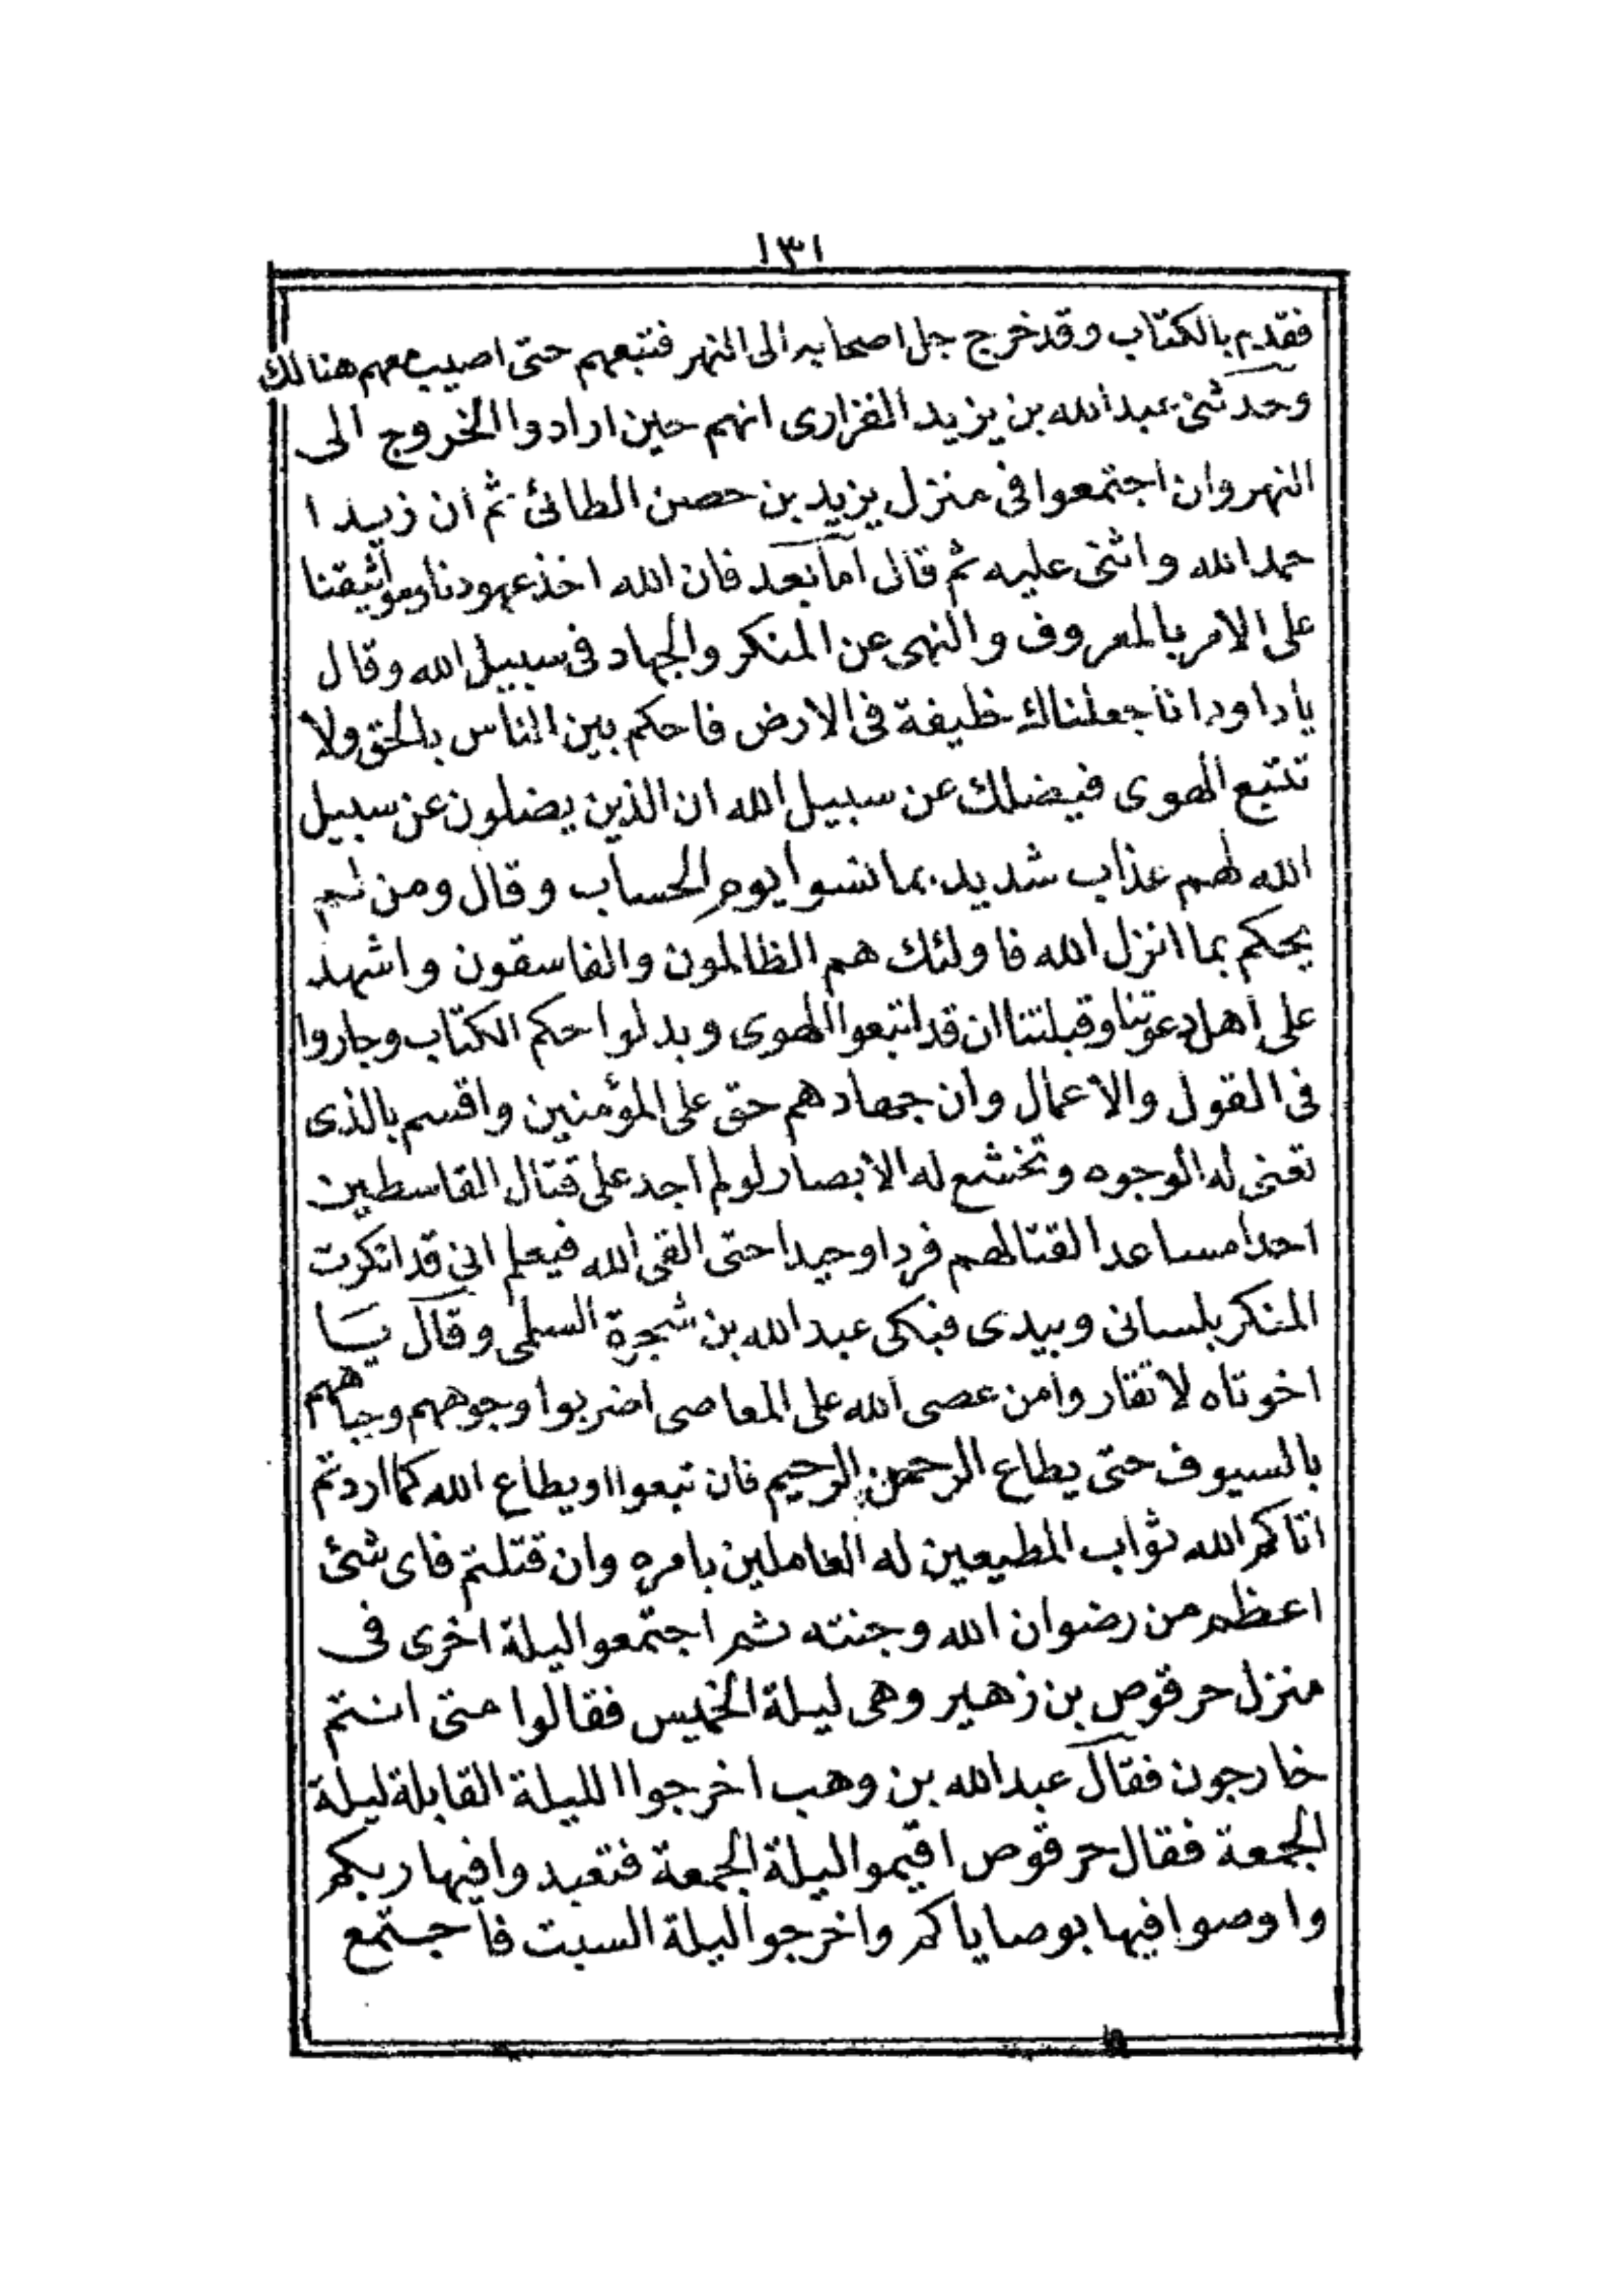 ١٣١
فقدم بالكتاب وقد خرج جل اصحابه الى النهر فتبعهم حتى اصيب معهم هنالك
وحدثنى عبد الله بن يزيد الفزارى انهم حين ارادوا الخروج الى
النهروان اجتمعوا فى منزل يزيد بن حصن الطائى ثم ان زيدا
حمد الله واثنى عليه ثم قال اما بعد فان الله اخذ عهودنا ومواثيقنا
على الامر بالمعروف والنهى عن المنكر والجهاد فى سبيل الله وقال
يا داود انا جعلناك خليفة فى الارض فاحكم بين الناس بالحق ولا
تتبع الهوى فيضلك عن سبيل الله ان الذين يضلون عن سبيل
الله لهم عذاب شديد بما نسوا يوم الحساب وقال ومن لم
يحكم بما انزل الله فاولئك هم الظالمون والفاسقون واشهد
على اهل دعوتنا وقبلتنا ان قد اتبعوا الهوى وبدلوا حكم الكتاب وجاروا
فى القول والاعمال وان جهادهم حق على المؤمنين واقسم بالذى
تعنى له الوجوه وتخشع له الابصار لو لم اجد على قتال القاسطين
احدا مساعدا لقتالهم فردا وحيدا حتى القى الله فيعلم انى قد انكرت
المنكر بلسانى وبيدى فبكى عبد الله بن شجرة السلمى وقال يا
اخوتاه لا تقاروا من عصى الله على المعاصى اضربوا وجوههم وجباههم
بالسيوف حتى يطاع الرحمن الرحيم فان تبعوا او يطاع الله كما اردتم
اتاكم الله ثواب المطيعين له العاملين بامره وان قتلتم فاى شئ
اعظم من رضوان الله وجنته ثم اجتمعوا ليلة اخرى فى
منزل حرقوص بن زهير وهى ليلة الخميس فقالوا متى انتم
خارجون فقال عبد الله بن وهب اخرجوا الليلة القابلة ليلة
الجمعة فقال حرقوص اقيموا ليلة الجمعة فتعبدوا فيها ربكم
واوصوا فيها بوصاياكم واخرجوا ليلة السبت فاجتمع